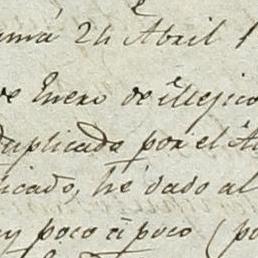 amá 24 Abril 1
de Enero de Mejico
duplicada por el A
licado, hé dado al
y poco á poco (po